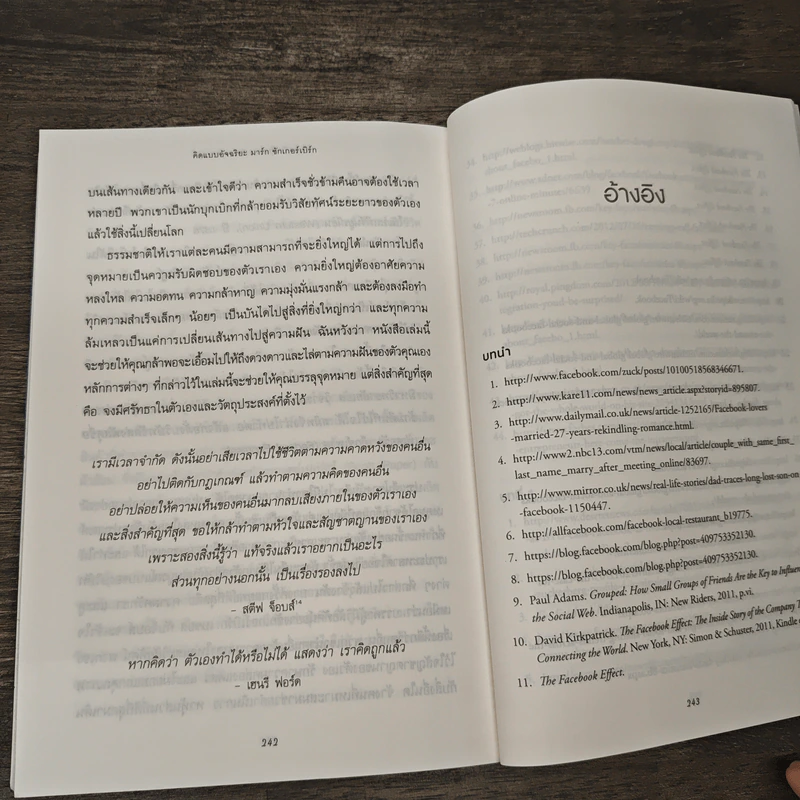 คิดแบบอัจฉริยะ มาร์ก ซักเกอร์เบิร์ก
บนเส้นทางเดียวกัน และเข้าใจดีว่า ความสำเร็จชั่วข้ามคืนอาจต้องใช้เวลา
หลายปี พวกเขาเป็นนักบุกเบิกที่กล้ายอมรับวิสัยทัศน์ระยะยาวของตัวเอง
แล้วใช้สิ่งนี้เปลี่ยนโลก
ธรรมชาติให้เราแต่ละคนมีความสามารถที่จะยิ่งใหญ่ได้ แต่การไปถึง
จุดหมายเป็นความรับผิดชอบของตัวเราเอง ความยิ่งใหญ่ต้องอาศัยความ
หลงใหล ความอดทน ความกล้าหาญ ความมุ่งมั่นแรงกล้า และต้องลงมือทำ
ทุกความสำเร็จเล็กๆ น้อยๆ เป็นบันไดไปสู่สิ่งที่ยิ่งใหญ่กว่า และทุกความ
ล้มเหลวเป็นแค่การเปลี่ยนเส้นทางไปสู่ความฝัน ฉันหวังว่า หนังสือเล่มนี้
จะช่วยให้คุณกล้าพอจะเอื้อมไปให้ถึงดวงดาวและไล่ตามความฝันของตัวคุณเอง
หลักการต่างๆ ที่กล่าวไว้ในเล่มนี้จะช่วยให้คุณบรรลุจุดหมาย แต่สิ่งสำคัญที่สุด
คือ จงมีศรัทธาในตัวเองและวัตถุประสงค์ที่ตั้งไว้
เรามีเวลาจำกัด ดังนั้นอย่าเสียเวลาไปใช้ชีวิตตามความคาดหวังของคนอื่น
อย่าไปติดกับกฎเกณฑ์ แล้วทำตามความคิดของคนอื่น
อย่าปล่อยให้ความเห็นของคนอื่นมากลบเสียงภายในของตัวเราเอง
และสิ่งสำคัญที่สุด ขอให้กล้าทำตามหัวใจและสัญชาตญาณของเราเอง
เพราะสองสิ่งนี้รู้ว่า แท้จริงแล้วเราอยากเป็นอะไร
ส่วนทุกอย่างนอกนั้น เป็นเรื่องรองลงไป
– สตีฟ จ็อบส์¹⁴
หากคิดว่า ตัวเองทำได้หรือไม่ได้ แสดงว่า เราคิดถูกแล้ว
– เฮนรี ฟอร์ด
242
อ้างอิง
บทนำ
1. http://www.facebook.com/zuck/posts/10100518568346671.
2. http://www.kare11.com/news/news_article.aspx?storyid=895807.
3. http://www.dailymail.co.uk/news/article-1252165/Facebook-lovers
-married-27-years-rekindling-romance.html.
4. http://www2.nbc13.com/vtm/news/local/article/couple_with_same_first_
last_name_marry_after_meeting_online/83697.
5. http://www.mirror.co.uk/news/real-life-stories/dad-traces-long-lost-son-on
-facebook-1150447.
6. http://allfacebook.com/facebook-local-restaurant_b19775.
7. https://blog.facebook.com/blog.php?post=409753352130.
8. https://blog.facebook.com/blog.php?post=409753352130.
9. Paul Adams. Grouped: How Small Groups of Friends Are the Key to Influen
the Social Web. Indianapolis, IN: New Riders, 2011, p.vi.
10. David Kirkpatrick. The Facebook Effect: The Inside Story of the Company T
Connecting the World. New York, NY: Simon & Schuster, 2011, Kindle
11. The Facebook Effect.
243